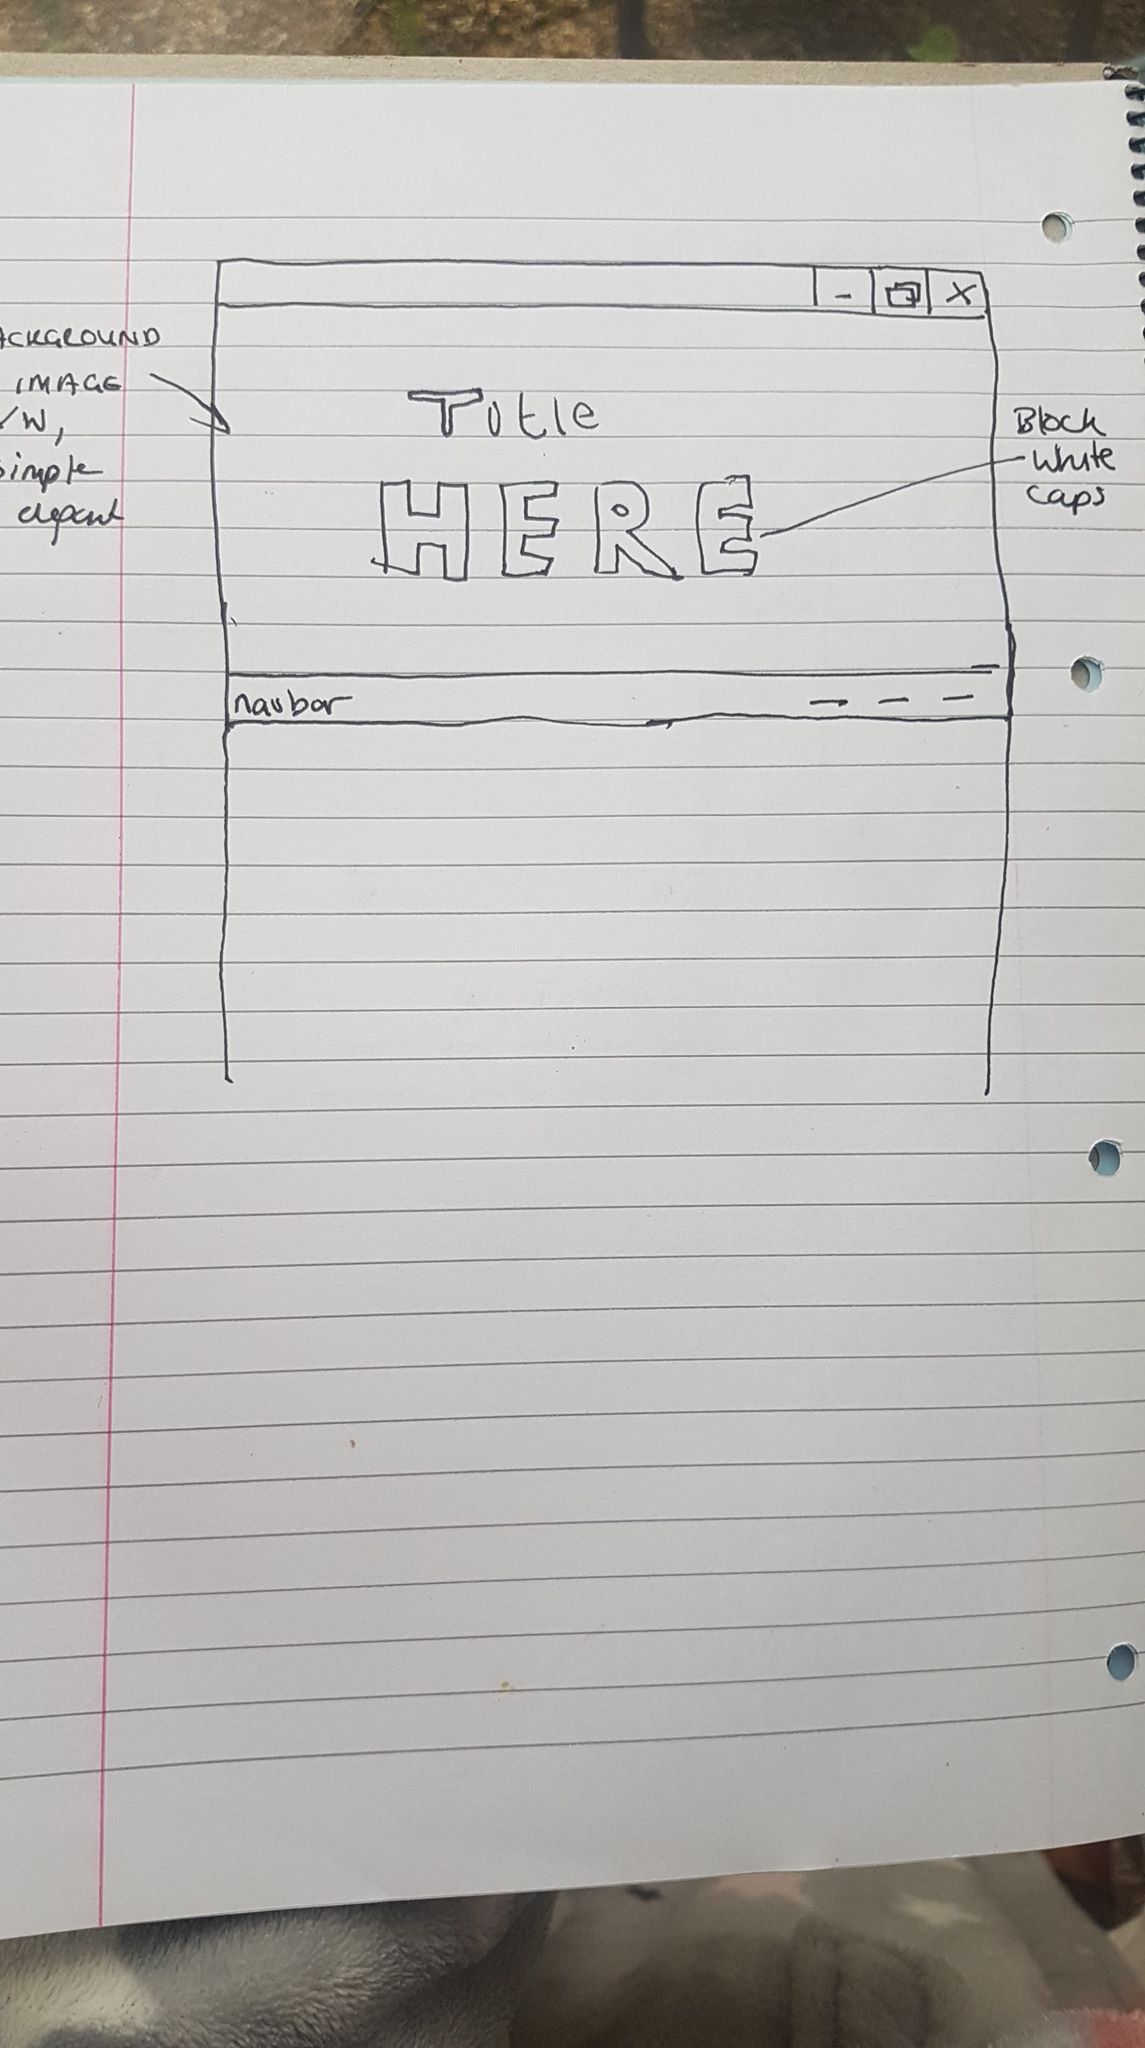 ACKGROUND
IMAGE
/W,
simple
elegant
Title
HERE
Block
white
caps
navbar